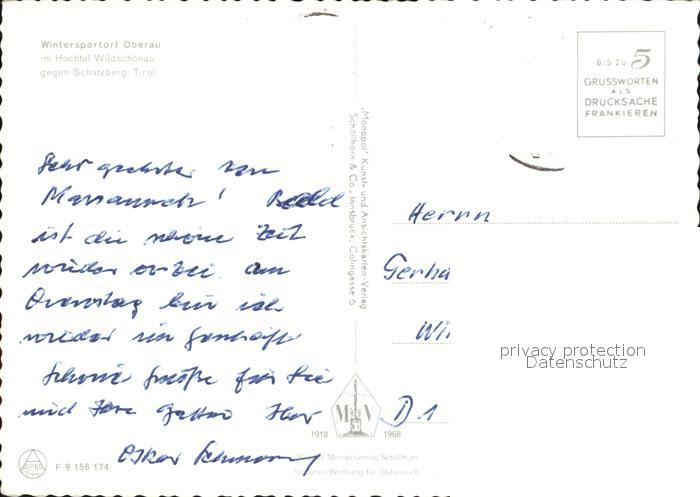 Wintersportort Oberau
im Hochtal Wildschönau
gegen Schatzberg, Tirol
BIS ZU 5
GRUSSWORTEN
ALS
DRUCKSACHE
FRANKIEREN
„Monopol" Kunst- und Ansichtskarten-Verlag
Schöllhorn & Co., Innsbruck, Colingasse 6
Sehr geehrter Herr
! Bald
ist die schöne Zeit
wieder vorbei. am
bin ich
wieder im Geschäft
Schöne Grüße für Sie
und Ihre Gattin Ihr
Oskar
Herrn
Gerha
Wi
D 1
privacy protection
Datenschutz
M V
1918 1968
Monopolverlag Schöllhorn
50 Jahre Werbung für Österreich
ALPINA
F 9 156 174